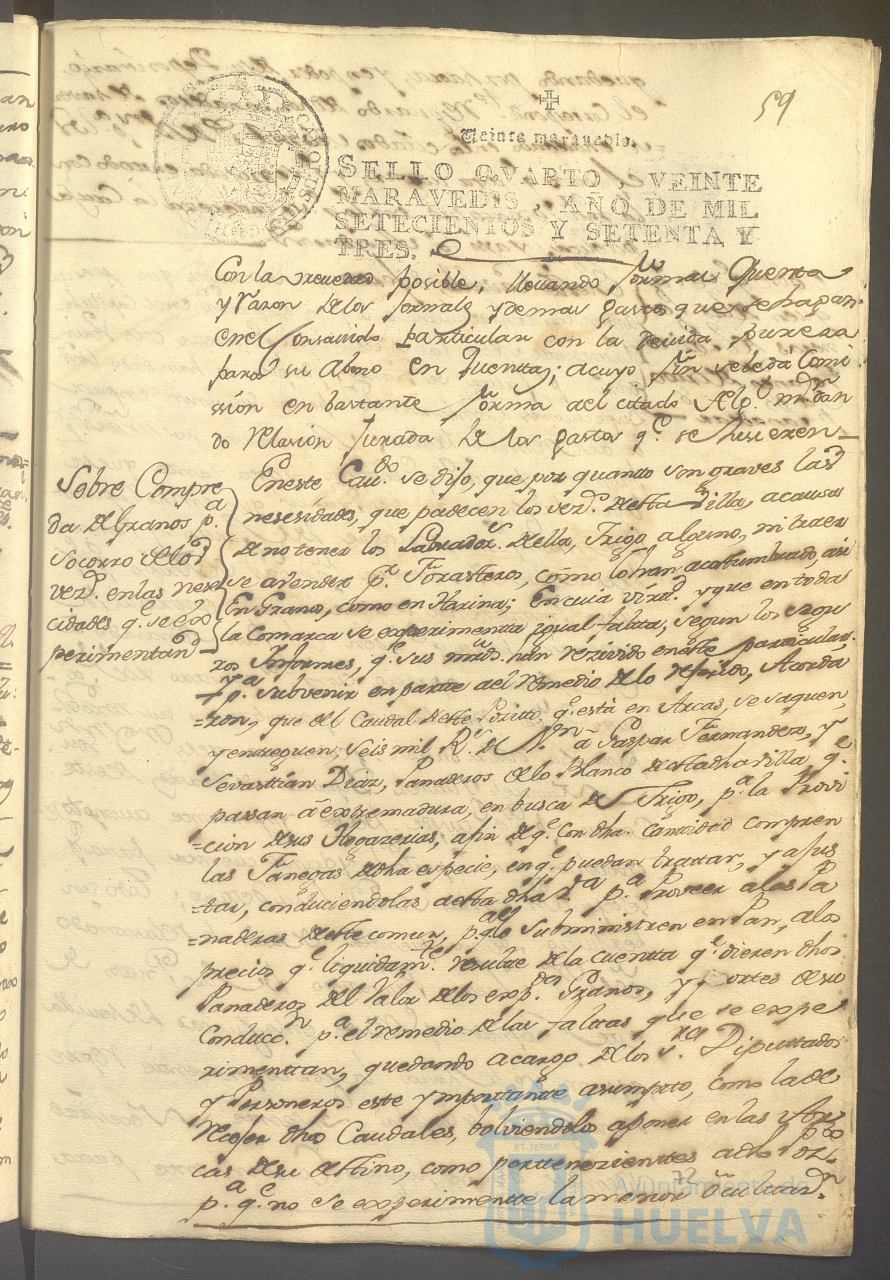 59
Veinte maravedis.
SELLO QVARTO, VEINTE
MARAVEDIS, AÑO DE MIL
SETECIENTOS Y SETENTA Y
TRES.
Con la posible, llevando formal Quenta
y razon de los Jornales y demas gastos que se hagan
en el particular con la devida pureza
para su Abono en Quentas; a cuyo fin se le dá Comi
sión en bastante forma al citado dan
do relasion Jurada de los gastos q.e se hisieren
Sobre Compra
da de Granos p.a
socorro de los
vez.s en las nese
cidades q.e se ex
perimentan
En este Cav.do se dijo, que por quanto son graves las
nesesidades, que padecen los vez.s de esta Villa, a causa
de no tener los Labrador.s de ella, Trigo alguno, ni traer
se a vender p.r Forasteros, como lo han acostumbrado, asi
En Grano, como en Harina; En cuia virt.d y que en toda
la Comarca se experimenta igual falta, segun los segu
ros Informes, q.e sus m.rds han resivido en este particular,
y p.a subvenir en parte al remedio de lo referido, Acorda
=ron, que del Caudal de este Posito, q.e está en Arcas, se saquen,
y entreguen, seis mil R.s de V.n á Gaspar Fernandez, y
Sevastian Diaz, Panaderos de lo Blanco de esta dha villa, q.e
passan á extremadura, en busca de Trigo, p.a la Provi
=cion de sus , afin de q.e con dha. Cantidad compren
las Fanegas de dha especie, en q.e puedan tratar, y ajus
=tar, conduciendolas a esta dha V.a p.a Proveer a las Pa
=naderas de este comun, p.a q.e le subministren en Pan, a los
precios q.e liquidam.te resulte de la cuenta q.e dieren dhos
Panaderos del Valor de los exp.dos Granos, y portes de su
Conducc.n p.a el remedio de las faltas que se expe
rimenttan, quedando a cargo de los s.res Diputtados
y Personeros este ymporttante asumpto, como la de
dhos Caudales, bolviendolos a poner en las Ar
cas de su desttino, como perttenezienttes a dho Posito
p.a q.e no se experimente la menor
72
ET TERRÆ
Ayuntamiento de
HUELVA